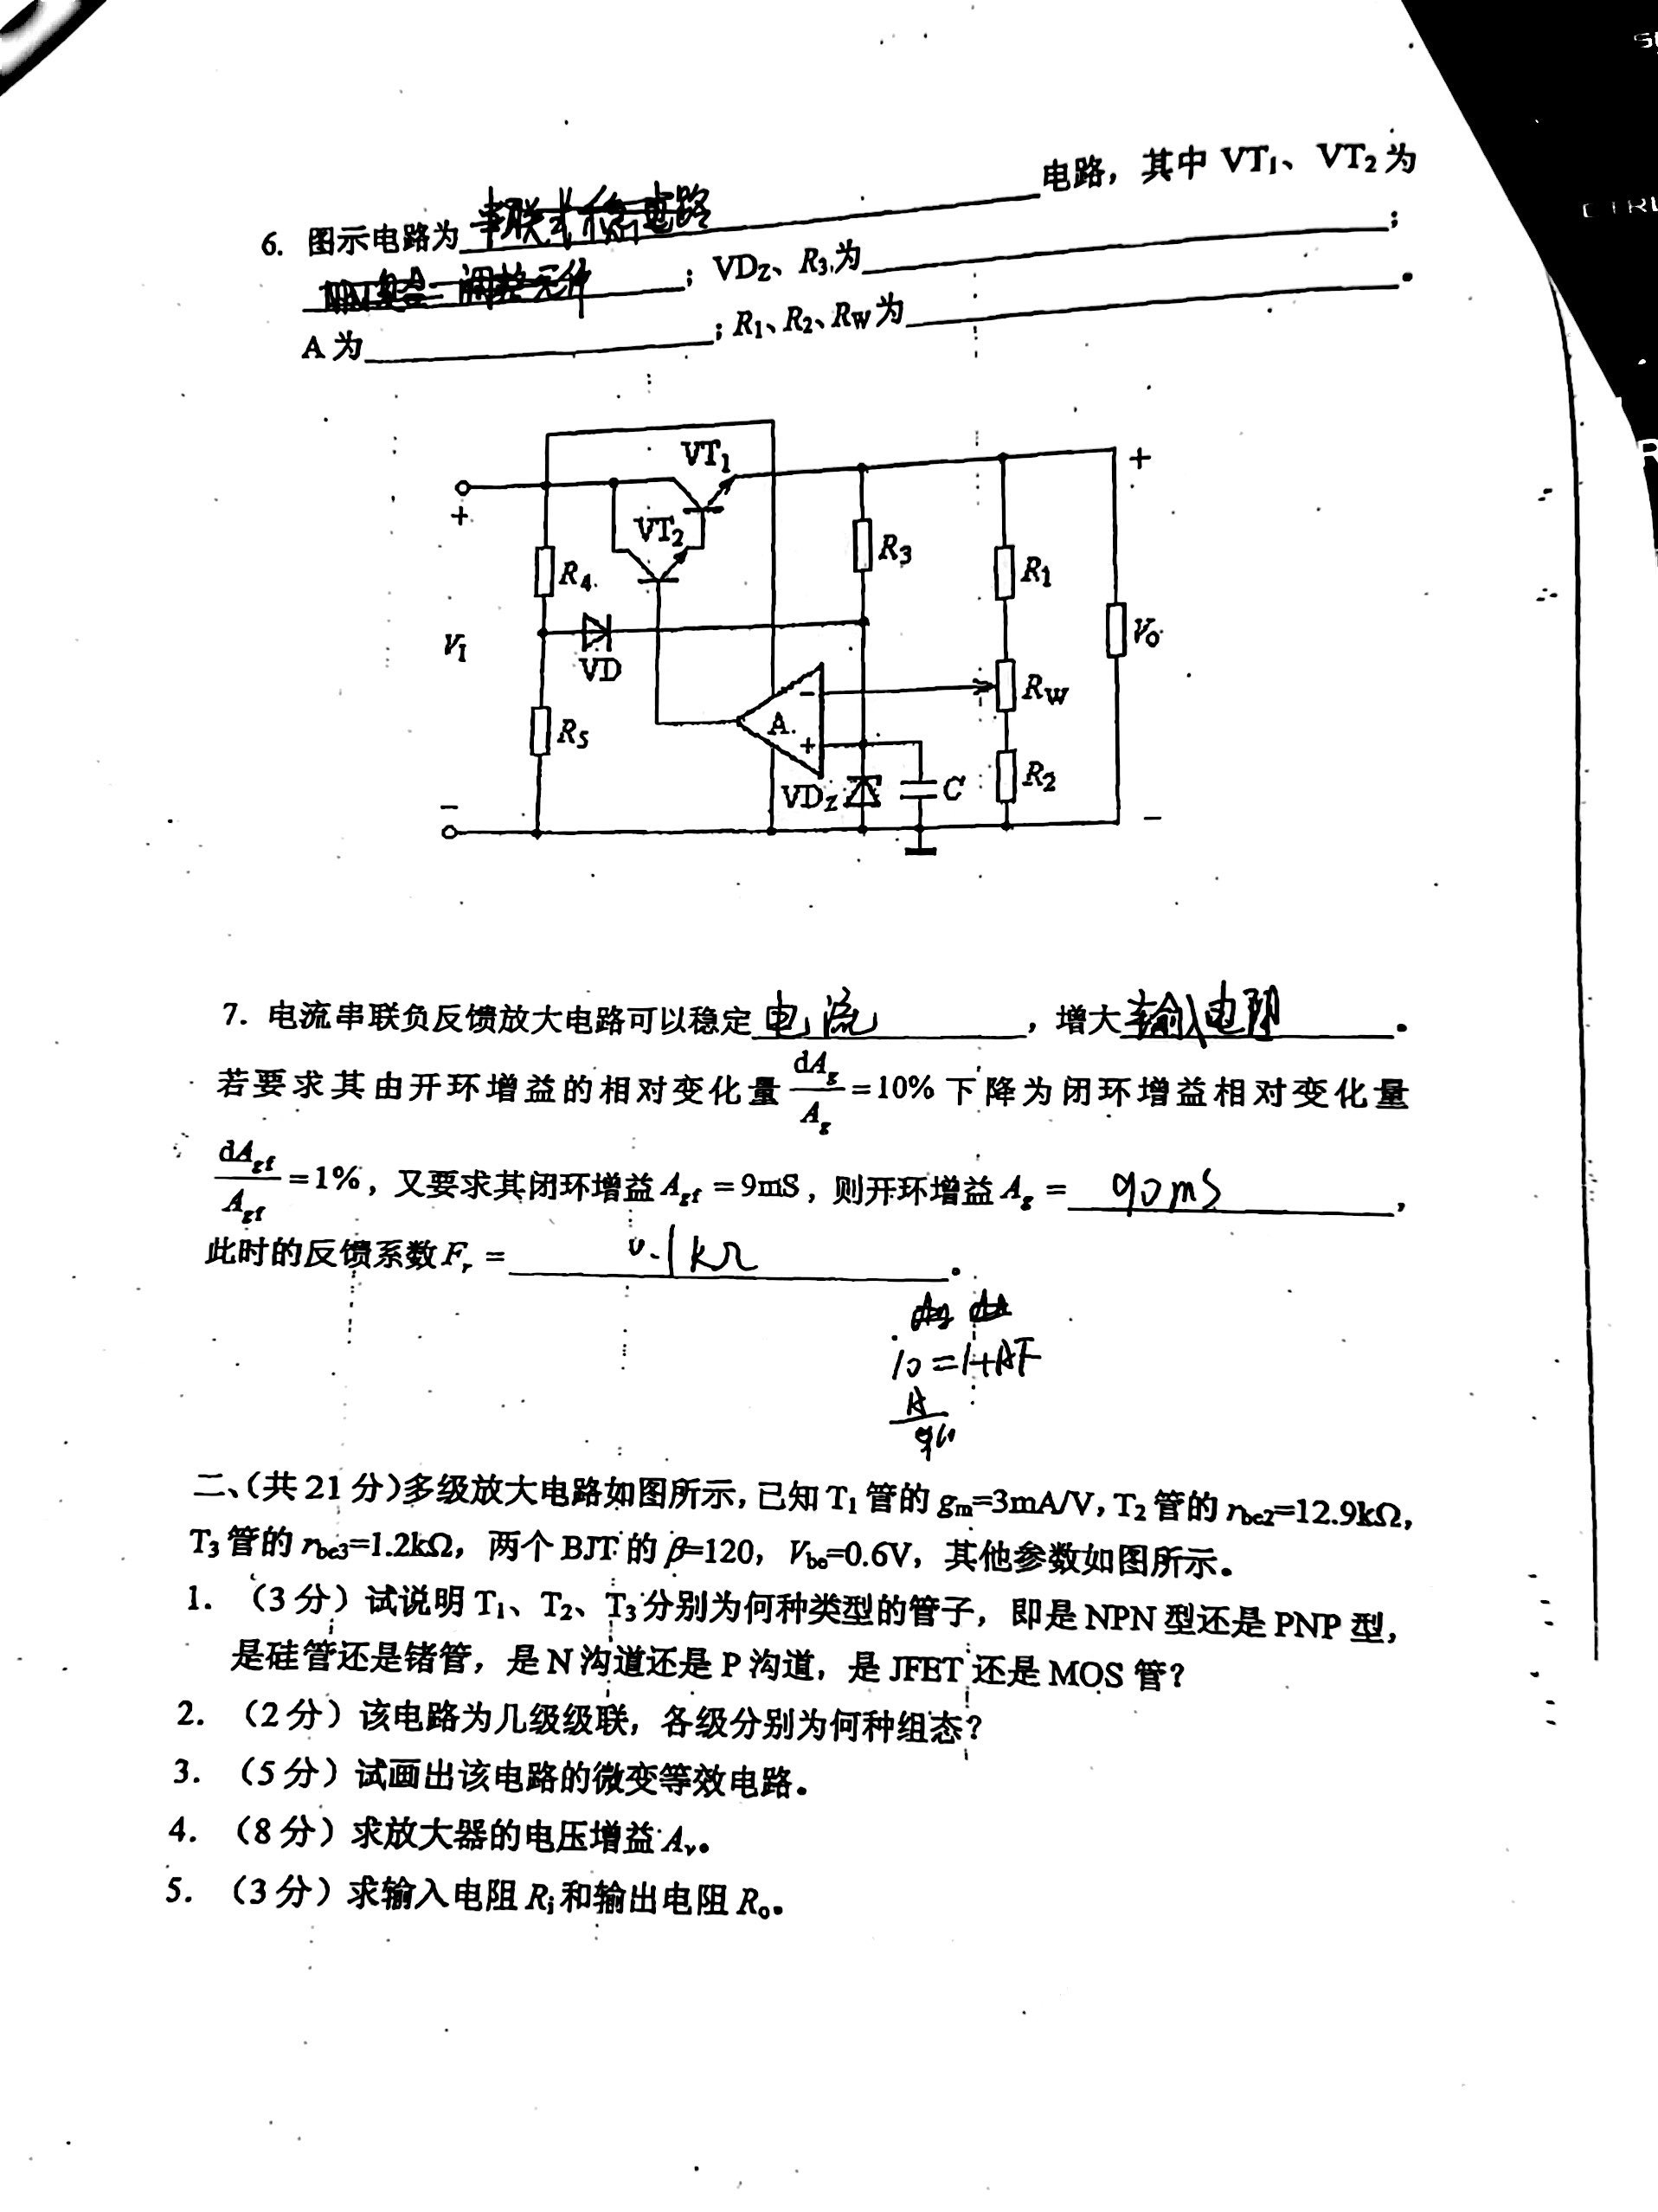 6. 图示电路为 串联式稳压电路 电路，其中 VT₁、VT₂为
复合 调整元件；VD_Z、R₃为；
A 为；R₁、R₂、R_W为。
VT₁
+
VT₂
R₃
R₄
R₁
V_I
VD
V_O
R_W
R₅
A
−
+
VD_Z
C
R₂
−
−
+
7. 电流串联负反馈放大电路可以稳定 电流，增大 输入电阻。
若要求其由开环增益的相对变化量 dA_g/A_g =10% 下降为闭环增益相对变化量
dA_gf/A_gf =1%，又要求其闭环增益 A_gf = 9mS，则开环增益 A_g = 90mS，
此时的反馈系数 F_r = 0.1kΩ。
10=1+AF
二、（共 21 分）多级放大电路如图所示，已知 T₁ 管的 g_m=3mA/V，T₂ 管的 r_be2=12.9kΩ，
T₃ 管的 r_be3=1.2kΩ，两个 BJT 的 β=120，V_be=0.6V，其他参数如图所示。
1. （3 分）试说明 T₁、T₂、T₃ 分别为何种类型的管子，即是 NPN 型还是 PNP 型，
是硅管还是锗管，是 N 沟道还是 P 沟道，是 JFET 还是 MOS 管？
2. （2 分）该电路为几级级联，各级分别为何种组态？
3. （5 分）试画出该电路的微变等效电路。
4. （8 分）求放大器的电压增益 A_v。
5. （3 分）求输入电阻 R_i 和输出电阻 R_o。